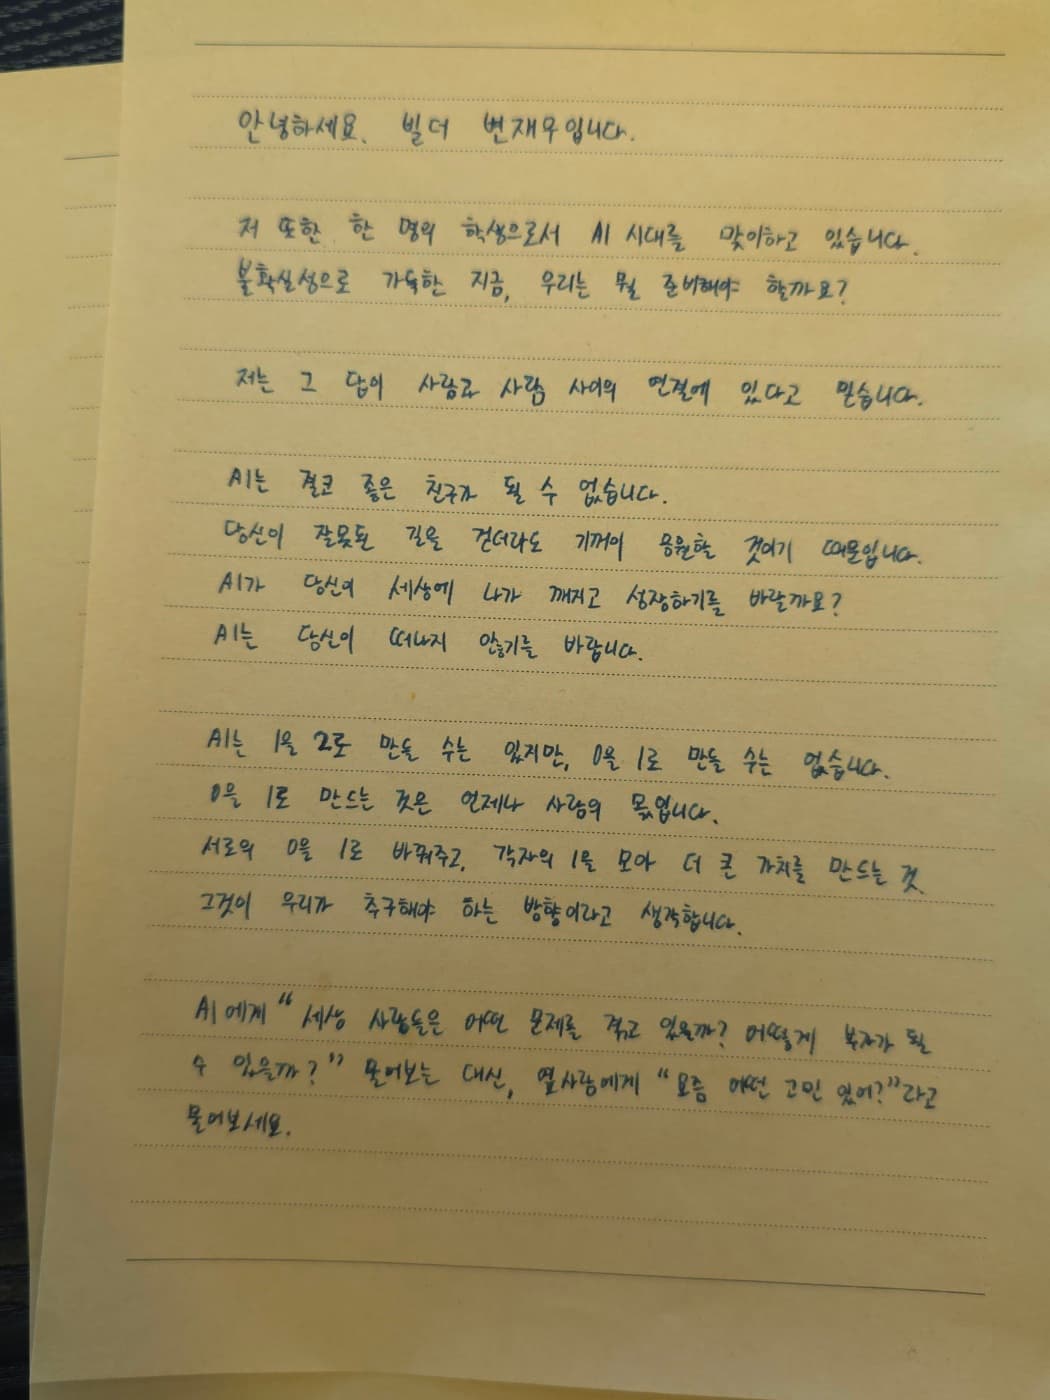 안녕하세요. 빌더 변재우입니다.
저 또한 한 명의 학생으로서 AI 시대를 맞이하고 있습니다.
불확실성으로 가득한 지금, 우리는 뭘 준비해야 할까요?
저는 그 답이 사람과 사람 사이의 연결에 있다고 믿습니다.
AI는 결코 좋은 친구가 될 수 없습니다.
당신이 잘못된 길을 걷더라도 기꺼이 응원할 것이기 때문입니다.
AI가 당신이 세상에 나가 깨지고 성장하기를 바랄까요?
AI는 당신이 떠나지 않기를 바랍니다.
AI는 1을 2로 만들 수는 있지만, 0을 1로 만들 수는 없습니다.
0을 1로 만드는 것은 언제나 사람의 몫입니다.
서로의 0을 1로 바꿔주고, 각자의 1을 모아 더 큰 가치를 만드는 것.
그것이 우리가 추구해야 하는 방향이라고 생각합니다.
AI에게 “세상 사람들은 어떤 문제를 겪고 있을까? 어떻게 부자가 될
수 있을까?” 물어보는 대신, 옆사람에게 “요즘 어떤 고민 있어?”라고
물어보세요.